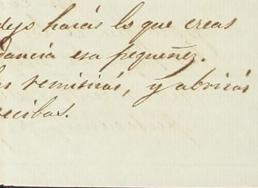 dejo harás lo que creas
tancia esa pequeñez.
las remitirás, y abrirás
recibas.